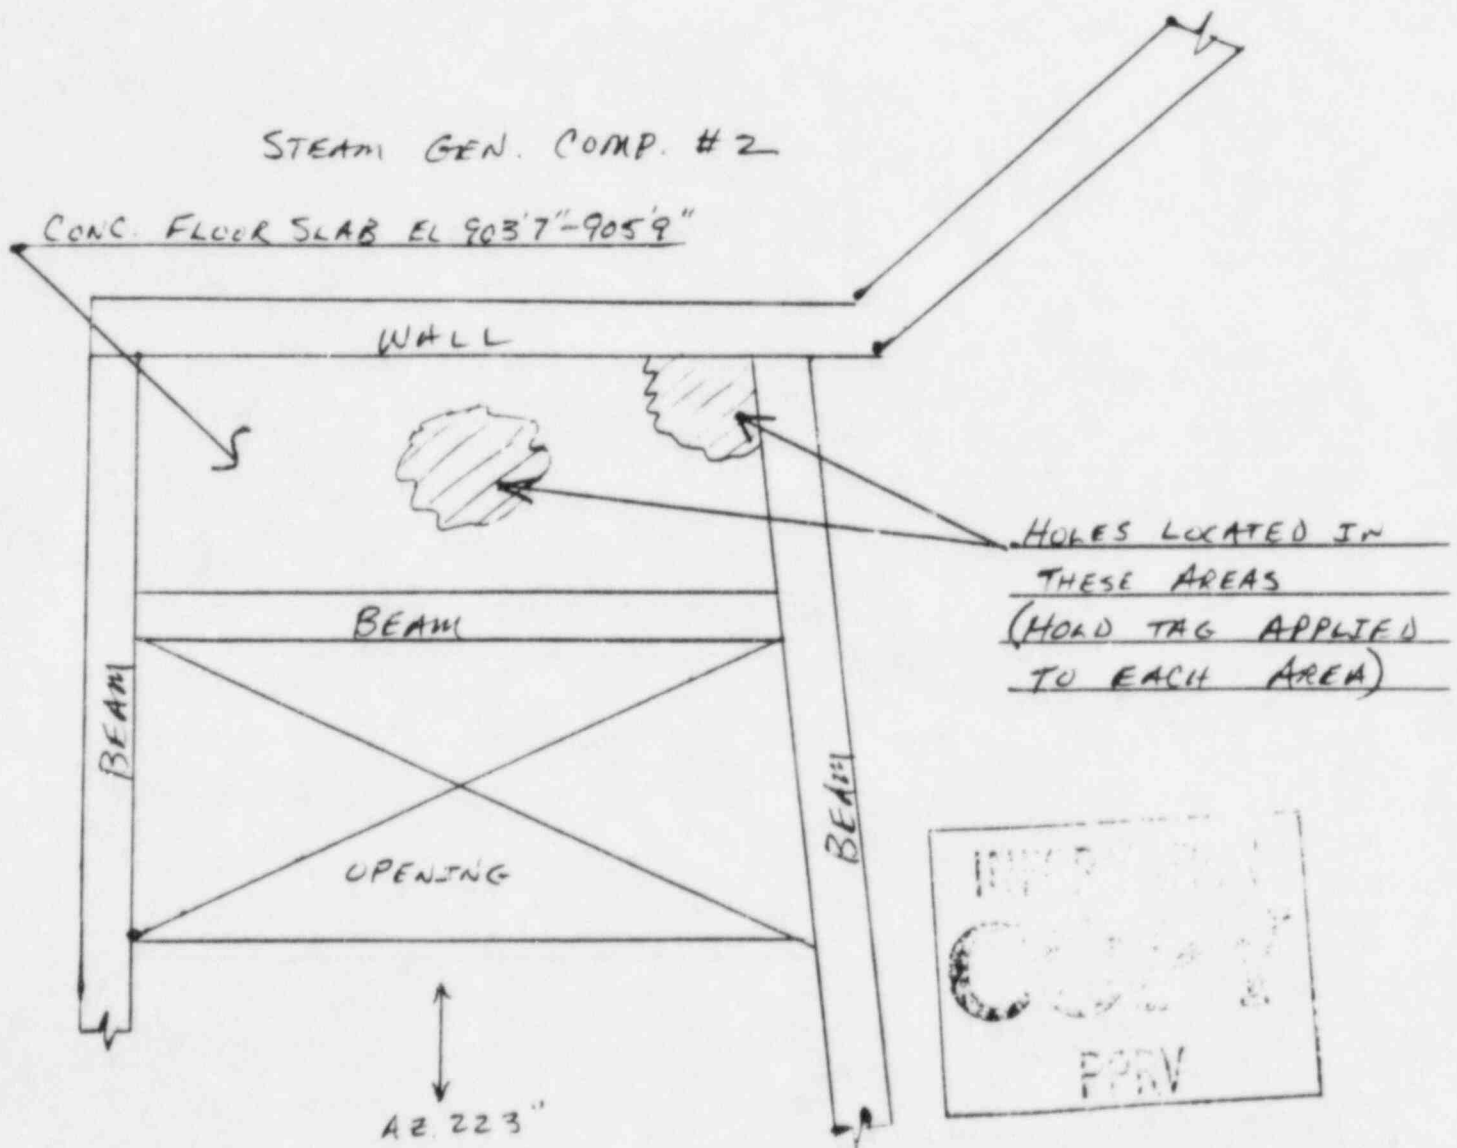 STEAM GEN. COMP. # 2
CONC. FLOOR SLAB EL 903'7"-905'9"
WALL
HOLES LOCATED IN
THESE AREAS
(HOLD TAG APPLIED
TO EACH AREA)
BEAM
BEAM
BEAM
OPENING
PPRV
AZ 223°